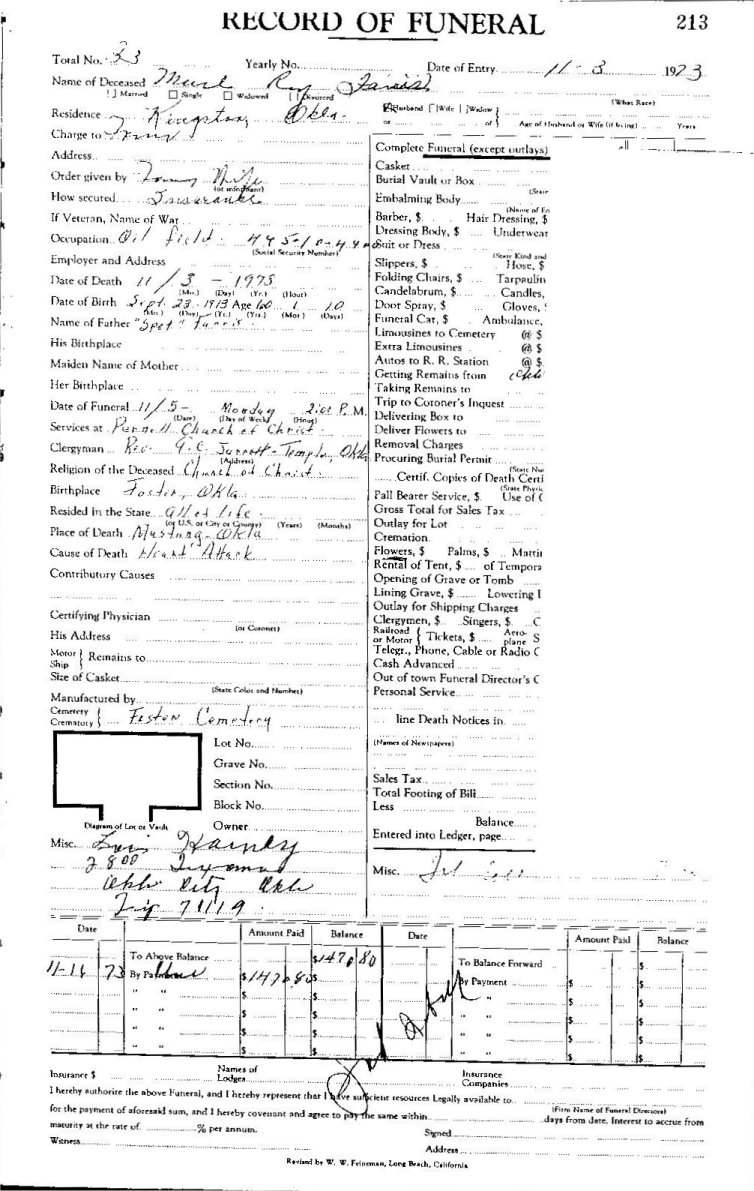 RECORD OF FUNERAL 213
Total No. 33 Yearly No. Date of Entry 11-3 1973
Name of Deceased Murl Ray Farris
[ ] Married [ ] Single [ ] Widowed [ ] Divorced
Husband [ ] Wife [ ] Widow (What Race)
or of Age of Husband or Wife (if living) Years
Residence Kingston, Okla.
Charge to
Address
Order given by
(or informant)
How secured Insurance
If Veteran, Name of War
Occupation Oil field 445-10-44
(Social Security Number)
Employer and Address
Date of Death 11/3 - 1973
(Mo.) (Day) (Yr.) (Hour)
Date of Birth Sept. 23 1913 Age 60 1 10
(Mo.) (Day) (Yr.) (Yrs.) (Mos.) (Days)
Name of Father "Spet" Farris
His Birthplace
Maiden Name of Mother
Her Birthplace
Date of Funeral 11/5- Monday 2:00 P.M.
(Date) (Day of Week) (Hour)
Services at Pernell Church of Christ
Clergyman Rev. G.C. Jarrett - Temple, Okla
(Address)
Religion of the Deceased Church of Christ
Birthplace Foster, Okla
Resided in the State All of life
(or U.S. or City or County) (Years) (Months)
Place of Death Mustang - Okla
Cause of Death Heart Attack
Contributory Causes
Certifying Physician
(or Coroner)
His Address
Motor Ship } Remains to
Size of Casket
(State Color and Number)
Manufactured by
Cemetery Crematory } Foster Cemetery
Lot No.
Grave No.
Section No.
Block No.
Diagram of Lot or Vault Owner
Misc. Harney
2800
Okla City Okla
Zip 71119
Complete Funeral (except outlays)
Casket
Burial Vault or Box
(State
Embalming Body
(Name of
Barber, $ Hair Dressing, $
Dressing Body, $ Underwear
Suit or Dress
(State Kind and
Slippers, $ Hose, $
Folding Chairs, $ Tarpaulin
Candelabrum, $ Candles,
Door Spray, $ Gloves,
Funeral Car, $ Ambulance,
Limousines to Cemetery @ $
Extra Limousines @ $
Autos to R. R. Station @ $
Getting Remains from
Taking Remains to
Trip to Coroner's Inquest
Delivering Box to
Deliver Flowers to
Removal Charges
Procuring Burial Permit
Certif. Copies of Death Certi
(State Physic
Pall Bearer Service, $ Use of
Gross Total for Sales Tax
Outlay for Lot
Cremation
Flowers, $ Palms, $
Rental of Tent, $ of Tempora
Opening of Grave or Tomb
Lining Grave, $ Lowering
Outlay for Shipping Charges
Clergymen, $ Singers, $
Railroad or Motor { Tickets, $ Aeroplane
Telegr., Phone, Cable or Radio
Cash Advanced
Out of town Funeral Director's
Personal Service
line Death Notices in
(Names of Newspapers)
Sales Tax
Total Footing of Bill
Less
Balance
Entered into Ledger, page
Misc.
Date Amount Paid Balance Date Amount Paid Balance
To Above Balance $1470 80 To Balance Forward $
11-16 73 By Payment $1470 80 $ By Payment $ $
" " $ $ " " $ $
" " $ $ " " $ $
" " $ $ " " $ $
" " $ $ " " $ $
Insurance $ Names of Lodges Insurance Companies
I hereby authorize the above Funeral, and I hereby represent that I have sufficient resources Legally available to
(Firm Name of Funeral Directors)
for the payment of aforesaid sum, and I hereby covenant and agree to pay the same within days from date. Interest to accrue from
maturity at the rate of % per annum. Signed
Witness Address
Revised by W. W. Feineman, Long Beach, California